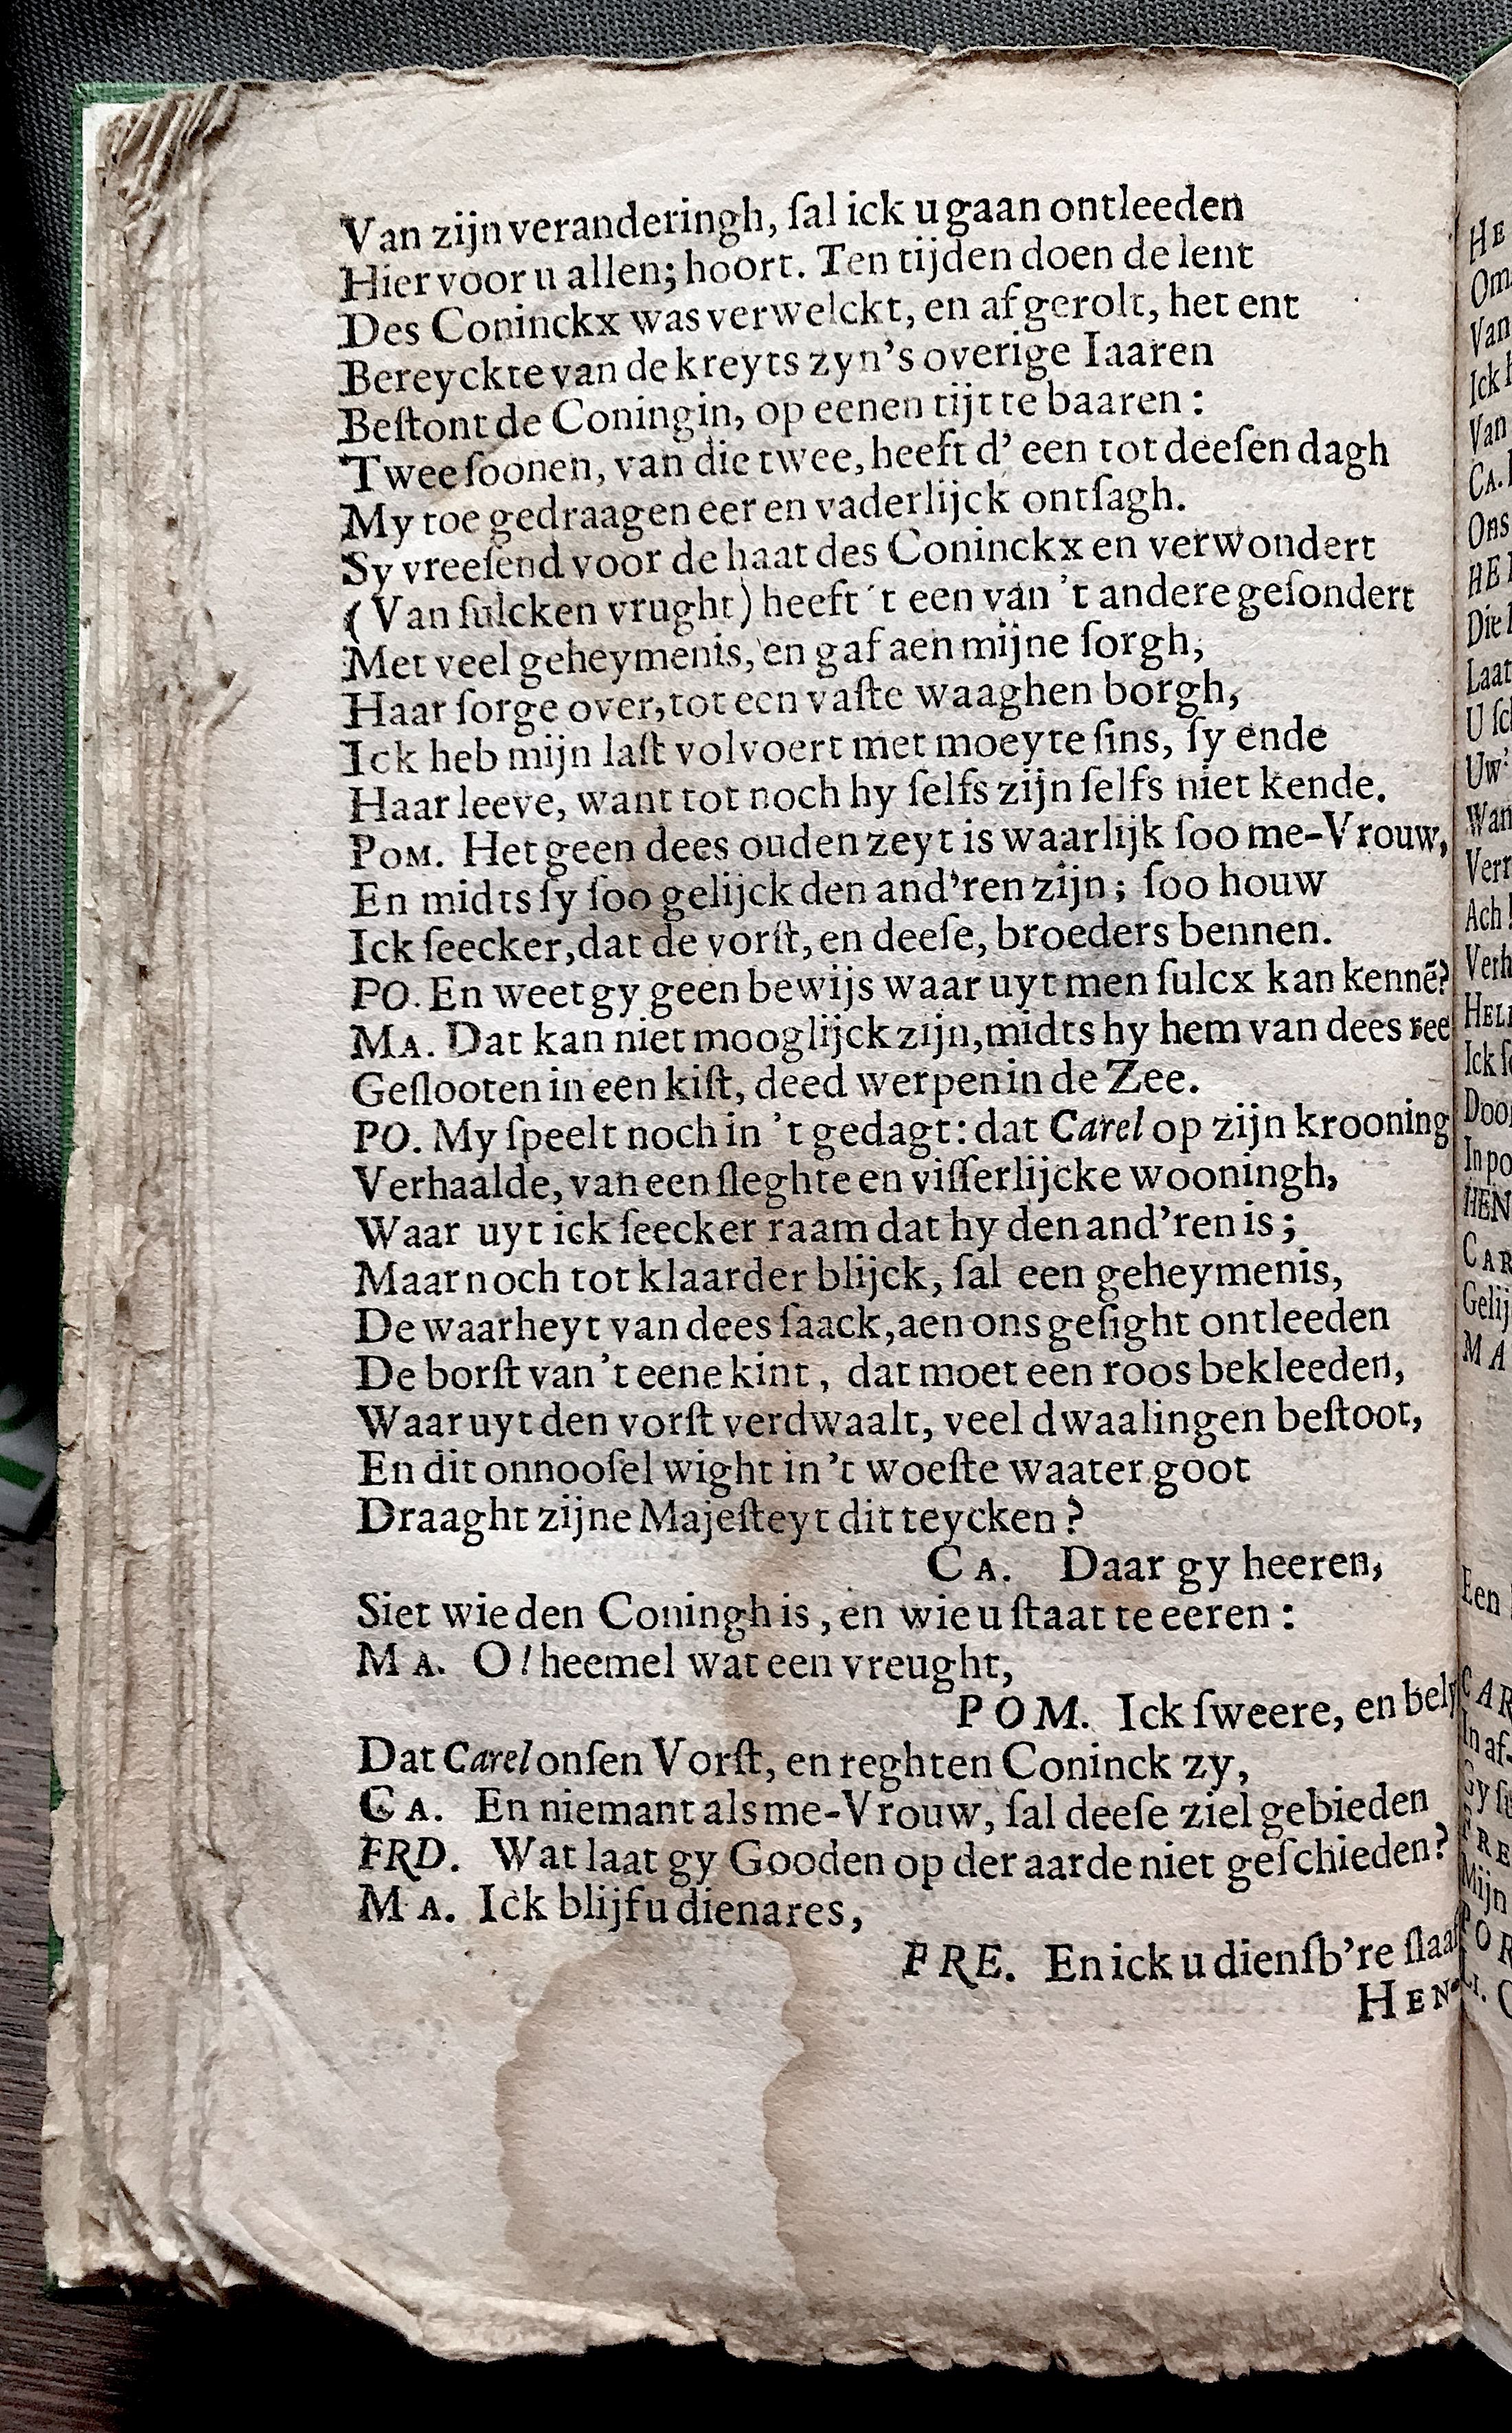 Van zijn veranderingh, ſal ick u gaan ontleeden
Hier voor u allen; hoort. Ten tijden doen de lent
Des Coninckx was verwelckt, en af gerolt, het ent
Bereyckte van de kreyts zyn's overige Iaaren
Beſtont de Coningin, op eenen tijt te baaren:
Twee ſoonen, van die twee, heeft d' een tot deeſen dagh
My toe gedraagen eer en vaderlijck ontſagh.
Sy vreeſend voor de haat des Coninckx en verwondert
(Van ſulcken vrught) heeft 't een van 't andere geſondert
Met veel geheymenis, en gaf aen mijne ſorgh,
Haar ſorge over, tot een vaſte waaghen borgh,
Ick heb mijn laſt volvoert met moeyte ſins, ſy ende
Haar leeve, want tot noch hy ſelfs zijn ſelfs niet kende.
POM. Het geen dees ouden zeyt is waarlijk ſoo me-Vrouw,
En midts ſy ſoo gelijck den and'ren zijn; ſoo houw
Ick ſeecker, dat de vorſt, en deeſe, broeders bennen.
PO. En weet gy geen bewijs waar uyt men ſulcx kan kennē?
MA. Dat kan niet mooglijck zijn, midts hy hem van dees ree
Geſlooten in een kiſt, deed werpen in de Zee.
PO. My ſpeelt noch in 't gedagt: dat Carel op zijn krooning
Verhaalde, van een ſleghte en viſſerlijcke wooningh,
Waar uyt ick ſeecker raam dat hy den and'ren is;
Maar noch tot klaarder blijck, ſal een geheymenis,
De waarheyt van dees ſaack, aen ons geſight ontleeden
De borſt van 't eene kint, dat moet een roos bekleeden,
Waar uyt den vorſt verdwaalt, veel dwaalingen beſtoot,
En dit onnooſel wight in 't woeſte waater goot
Draaght zijne Majeſteyt dit teycken?
CA. Daar gy heeren,
Siet wie den Coningh is, en wie u ſtaat te eeren:
MA. O! heemel wat een vreught,
POM. Ick ſweere, en bely
Dat Carel onſen Vorſt, en reghten Coninck zy,
CA. En niemant als me-Vrouw, ſal deeſe ziel gebieden
FRD. Wat laat gy Gooden op der aarde niet geſchieden?
MA. Ick blijf u dienares,
FRE. En ick u dienſb're ſlaaf
HEN-
HE
Om
Van
Ick
Van
CA.
Ons
HE
Die
Laat
U
Uw
Wan
Verr
Ach
Verh
HEL
Ick
Doo
In po
HEN
CAR
Gelij
MA
Een
CAR
In af-
Gy
FRE
Mijn
POR
LI.